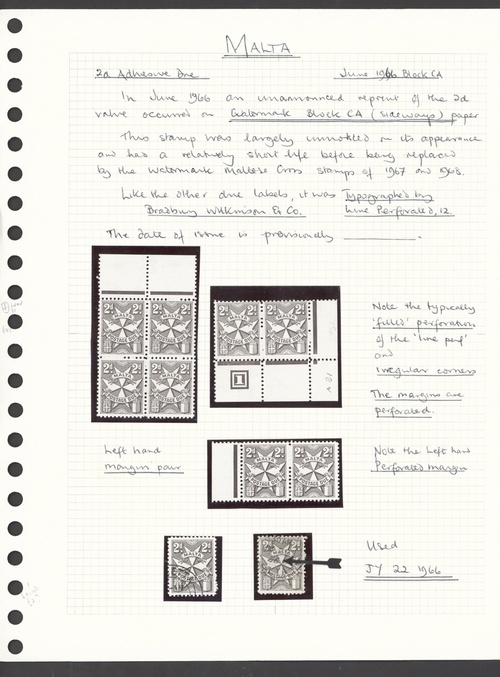 MALTA
2d Adhesive Due June 1966 Block CA
In June 1966 an unannounced reprint of the 2d
value occurred on Watermark Block CA (sideways) paper
This stamp was largely unnoticed on its appearance
and has a relatively short life before being replaced
by the Watermark Maltese Cross stamps of 1967 and 1968.
Like the other due labels, it was Typographed by
Bradbury Wilkinson & Co. Line Perforated, 12.
The date of issue is provisionally
2d MALTA 2d MALTA
POSTAGE DUE POSTAGE DUE
2d MALTA 2d MALTA
POSTAGE DUE POSTAGE DUE
2d MALTA 2d MALTA
POSTAGE DUE POSTAGE DUE
1
Note the typically
'filled' perforation
of the 'line perf'
and
irregular corners
The margins are
perforated.
Left hand
margin pair
2d MALTA 2d MALTA
POSTAGE DUE POSTAGE DUE
Note the Left hand
Perforated margin
2d MALTA
2d MALTA
Used
JY 22 1966